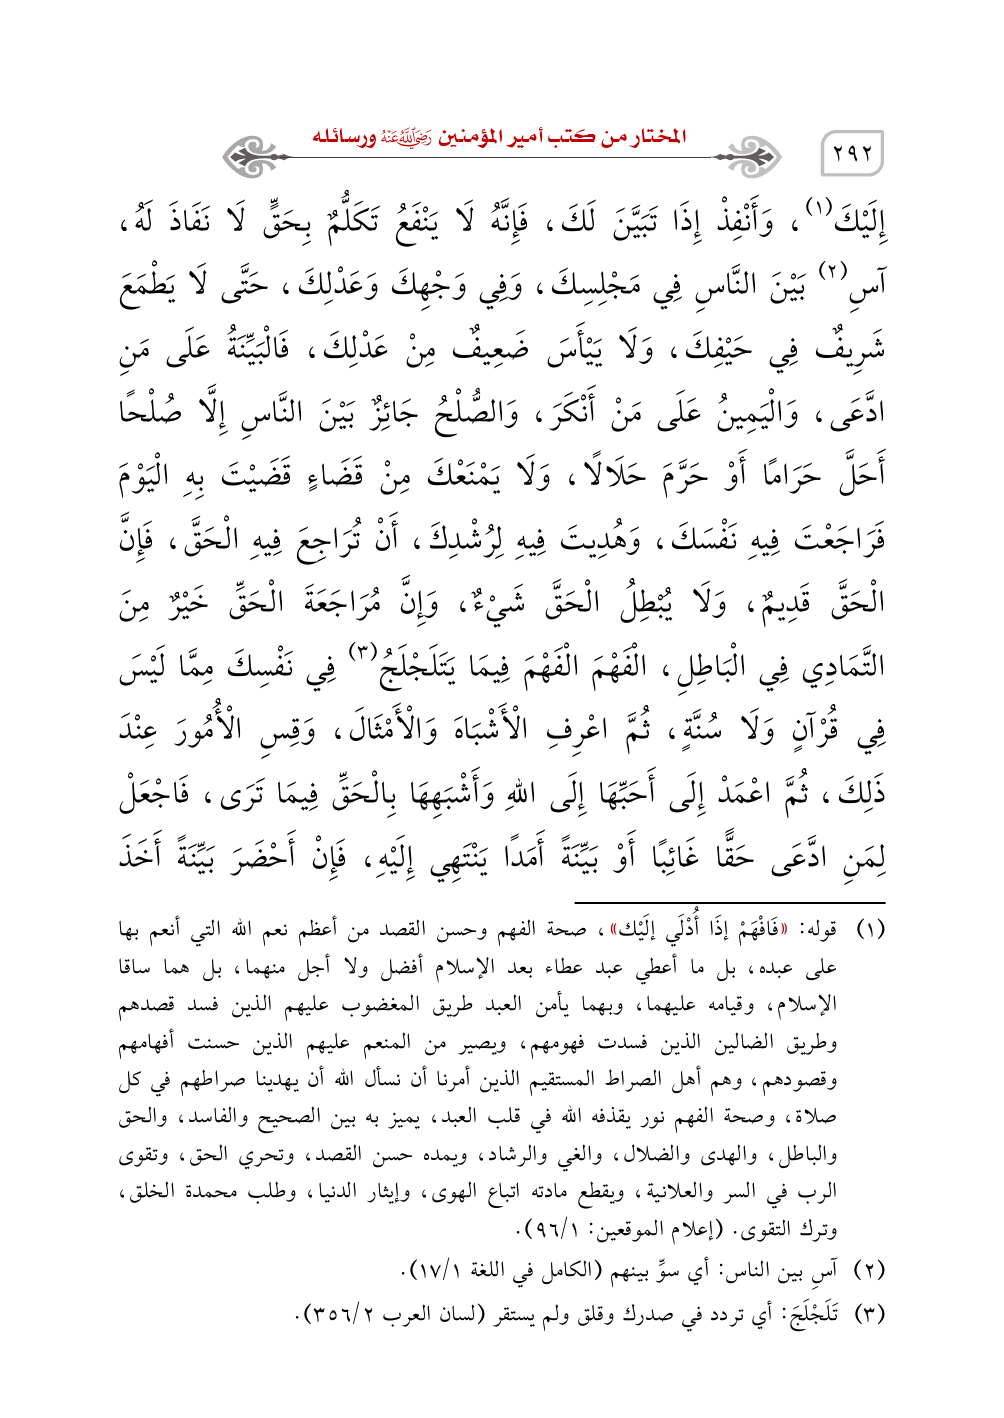 ٢٩٢
المختار من كتب أمير المؤمنين رَضِيَ اللَّهُ عَنْهُ ورسائله
إِلَيْكَ(١)، وَأَنْفِذْ إِذَا تَبَيَّنَ لَكَ، فَإِنَّهُ لَا يَنْفَعُ تَكَلُّمٌ بِحَقٍّ لَا نَفَاذَ لَهُ،
آسِ(٢) بَيْنَ النَّاسِ فِي مَجْلِسِكَ، وَفِي وَجْهِكَ وَعَدْلِكَ، حَتَّى لَا يَطْمَعَ
شَرِيفٌ فِي حَيْفِكَ، وَلَا يَيْأَسَ ضَعِيفٌ مِنْ عَدْلِكَ، فَالْبَيِّنَةُ عَلَى مَنِ
ادَّعَى، وَالْيَمِينُ عَلَى مَنْ أَنْكَرَ، وَالصُّلْحُ جَائِزٌ بَيْنَ النَّاسِ إِلَّا صُلْحًا
أَحَلَّ حَرَامًا أَوْ حَرَّمَ حَلَالًا، وَلَا يَمْنَعْكَ مِنْ قَضَاءٍ قَضَيْتَ بِهِ الْيَوْمَ
فَرَاجَعْتَ فِيهِ نَفْسَكَ، وَهُدِيتَ فِيهِ لِرُشْدِكَ، أَنْ تُرَاجِعَ فِيهِ الْحَقَّ، فَإِنَّ
الْحَقَّ قَدِيمٌ، وَلَا يُبْطِلُ الْحَقَّ شَيْءٌ، وَإِنَّ مُرَاجَعَةَ الْحَقِّ خَيْرٌ مِنَ
التَّمَادِي فِي الْبَاطِلِ، الْفَهْمَ الْفَهْمَ فِيمَا يَتَلَجْلَجُ(٣) فِي نَفْسِكَ مِمَّا لَيْسَ
فِي قُرْآنٍ وَلَا سُنَّةٍ، ثُمَّ اعْرِفِ الْأَشْبَاهَ وَالْأَمْثَالَ، وَقِسِ الْأُمُورَ عِنْدَ
ذَلِكَ، ثُمَّ اعْمَدْ إِلَى أَحَبِّهَا إِلَى اللهِ وَأَشْبَهِهَا بِالْحَقِّ فِيمَا تَرَى، فَاجْعَلْ
لِمَنِ ادَّعَى حَقًّا غَائِبًا أَوْ بَيِّنَةً أَمَدًا يَنْتَهِي إِلَيْهِ، فَإِنْ أَحْضَرَ بَيِّنَةً أَخَذَ
(١) قوله: «فَافْهَمْ إذَا أُدْلَي إلَيْك»، صحة الفهم وحسن القصد من أعظم نعم الله التي أنعم بها
على عبده، بل ما أعطي عبد عطاء بعد الإسلام أفضل ولا أجل منهما، بل هما ساقا
الإسلام، وقيامه عليهما، وبهما يأمن العبد طريق المغضوب عليهم الذين فسد قصدهم
وطريق الضالين الذين فسدت فهومهم، ويصير من المنعم عليهم الذين حسنت أفهامهم
وقصودهم، وهم أهل الصراط المستقيم الذين أمرنا أن نسأل الله أن يهدينا صراطهم في كل
صلاة، وصحة الفهم نور يقذفه الله في قلب العبد، يميز به بين الصحيح والفاسد، والحق
والباطل، والهدى والضلال، والغي والرشاد، ويمده حسن القصد، وتحري الحق، وتقوى
الرب في السر والعلانية، ويقطع مادته اتباع الهوى، وإيثار الدنيا، وطلب محمدة الخلق،
وترك التقوى. (إعلام الموقعين: ٩٦/١).
(٢) آسِ بين الناس: أي سوِّ بينهم (الكامل في اللغة ١٧/١).
(٣) تَلَجْلَجَ: أي تردد في صدرك وقلق ولم يستقر (لسان العرب ٣٥٦/٢).